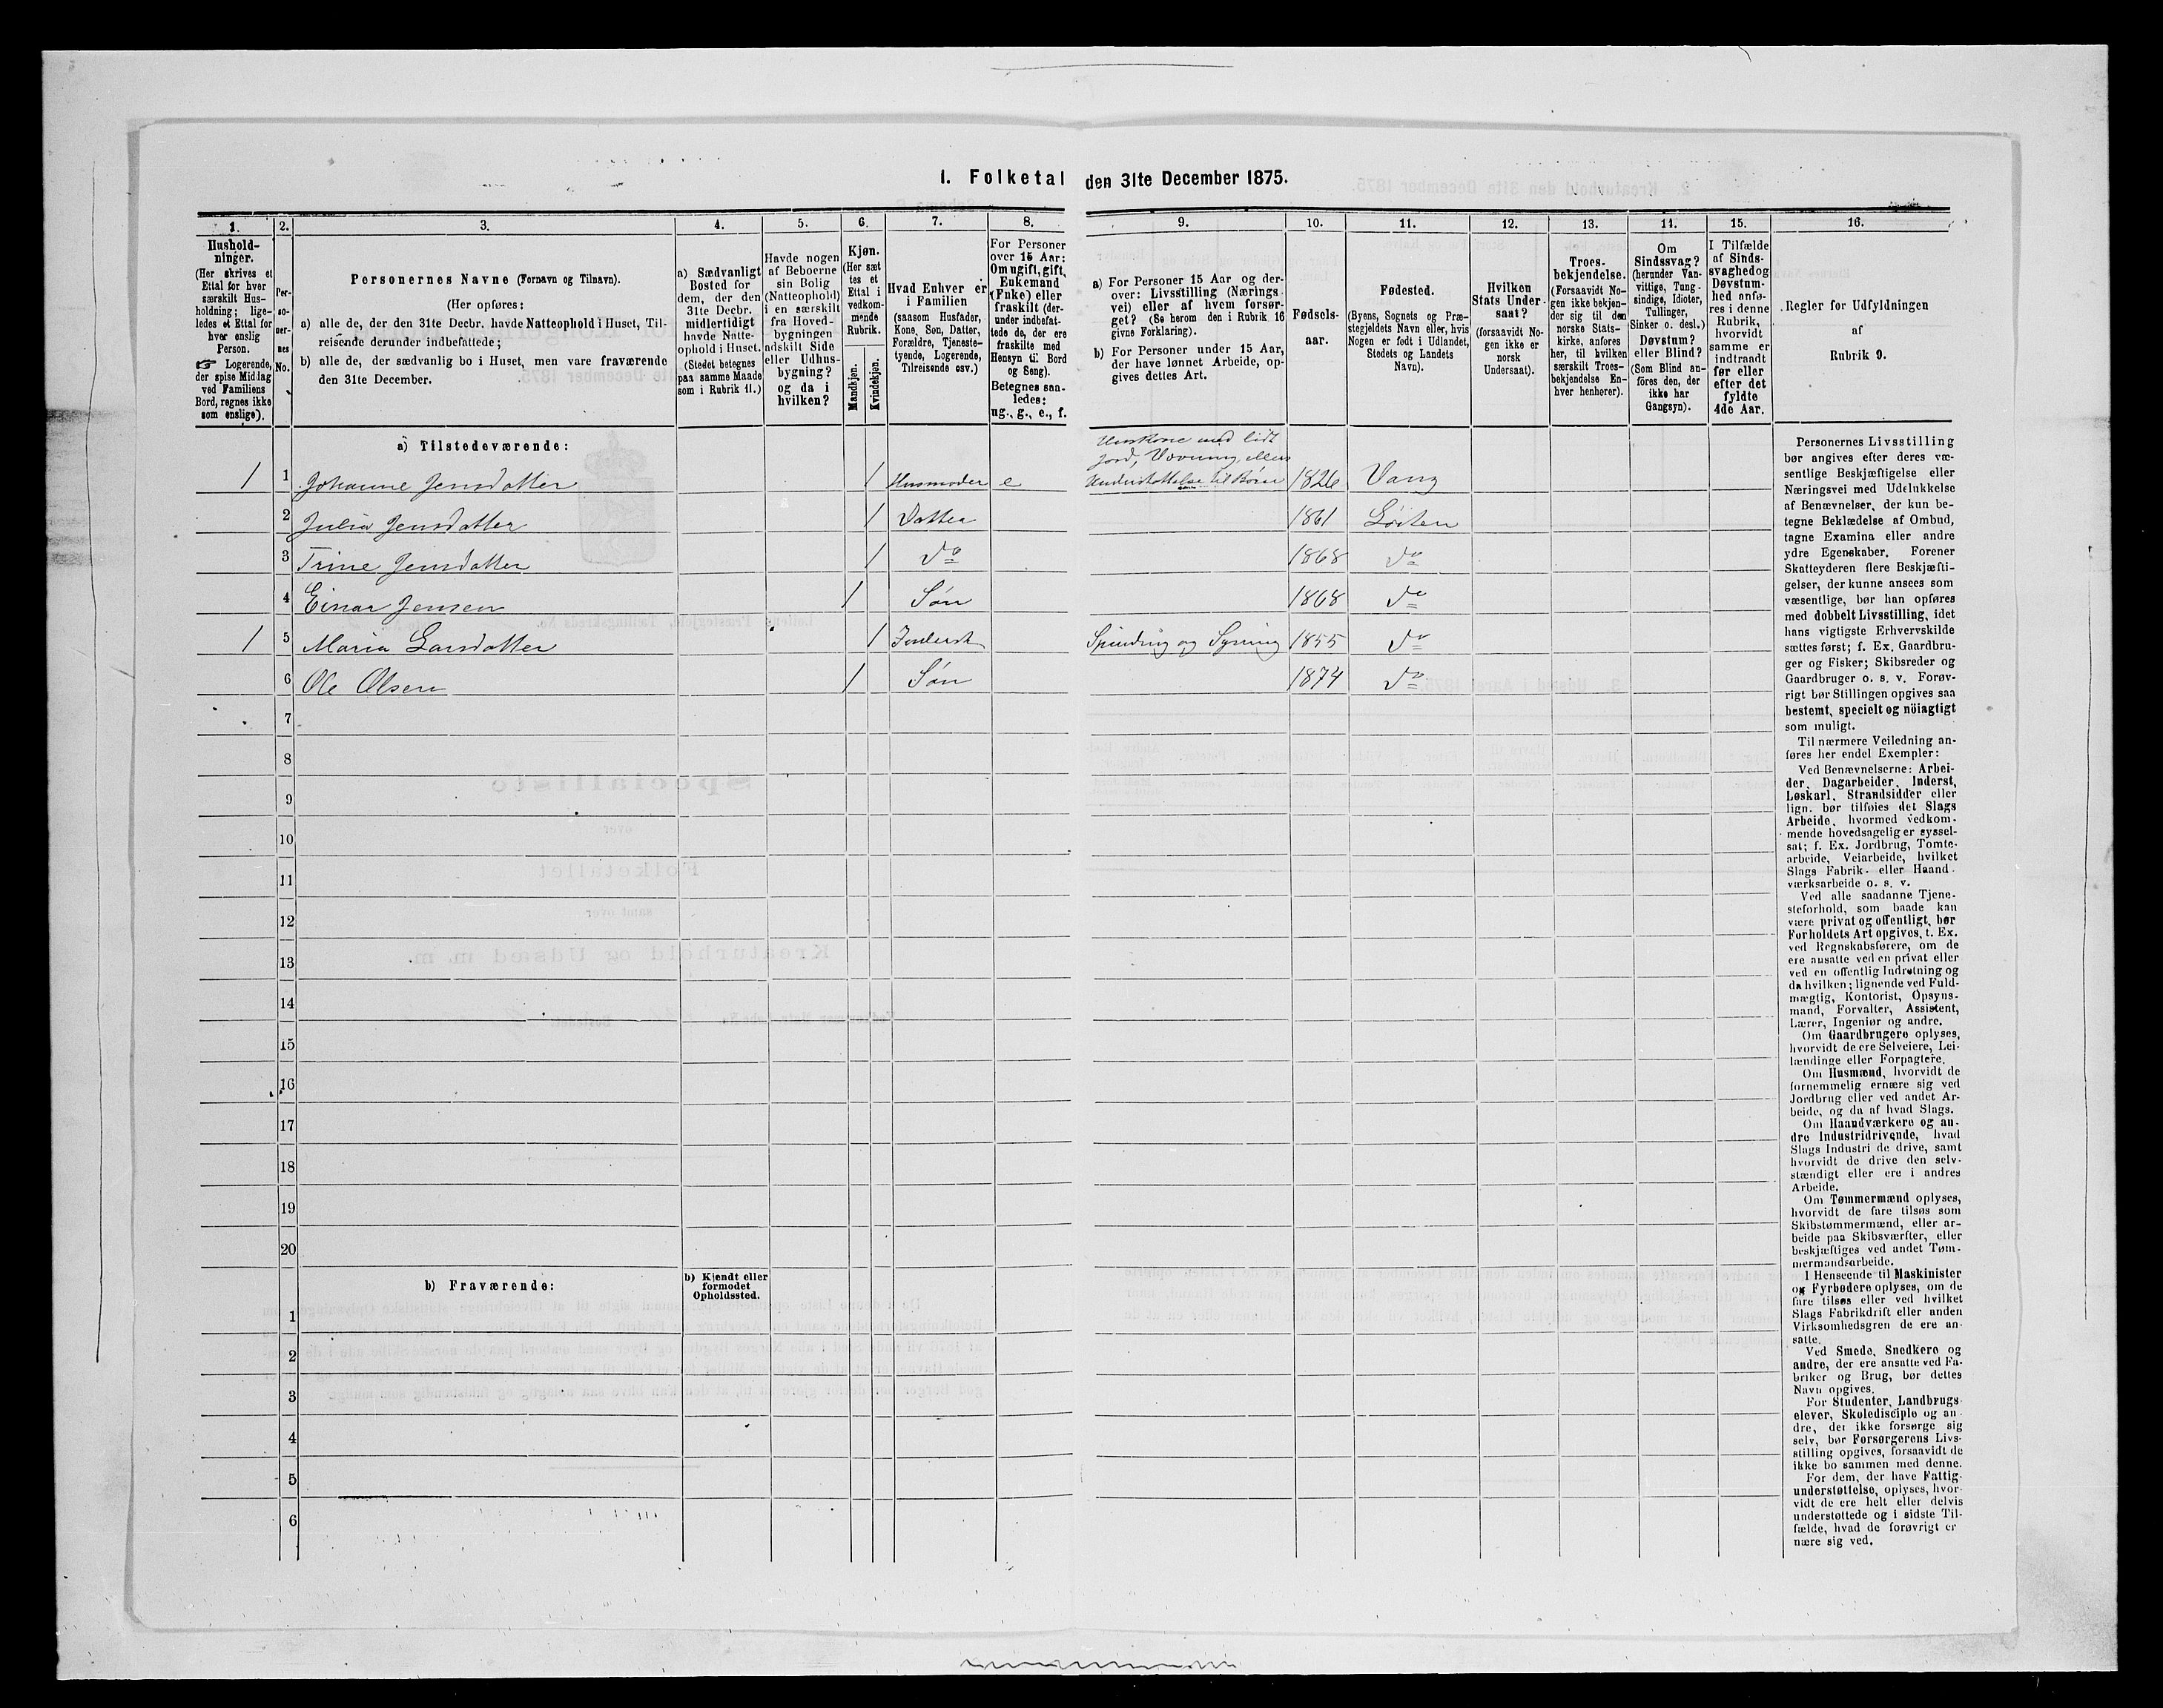 1. Folketal den 31te December 1875.
1.
Hushold-
ninger.
(Her skrives et
Ettal for hver
særskilt Hus-
holdning; lige-
ledes et Ettal for
hver enslig
Person.
☞ Logerende,
der spise Middag
ved Familiens
Bord, regnes ikke
som enslige).
2.
Per-
so-
ner-
nes
No.
3.
Personernes Navne (Fornavn og Tilnavn).
(Her opføres:
a) alle de, der den 31te Decbr. havde Natteophold i Huset, Til-
reisende derunder indbefattede;
b) alle de, der sædvanlig bo i Huset, men vare fraværende
den 31te December.
4.
a) Sædvanligt
Bosted for
dem, der den
31te Decbr.
midlertidigt
havde Natte-
ophold i Huset.
(Stedet betegnes
paa samme Maade
som i Rubrik 11.)
5.
Havde nogen
af Beboerne
sin Bolig
(Natteophold)
i en særskilt
fra Hoved-
bygningen
adskilt Side
eller Udhus-
bygning?
og da i
hvilken?
6.
Kjøn.
(Her sæt
tes et
Ettal i
vedkom-
mende
Rubrik.
Mandkjøn.
Kvindekjøn.
7.
Hvad Enhver er
i Familien
(saasom Husfader,
Kone, Søn, Datter,
Forældre, Tjeneste-
tyende, Logerende,
Tilreisende osv.)
8.
For Personer
over 15 Aar:
Om ugift, gift,
Enkemand
(Enke) eller
fraskilt (der-
under indbefat-
tede de, der ere
fraskilte med
Hensyn til Bord
og Seng).
Betegnes saa-
ledes:
ug., g., e., f.
9.
a) For Personer 15 Aar og der-
over: Livsstilling (Nærings-
vei) eller af hvem forsør-
get? (Se herom den i Rubrik 16
givne Forklaring).
b) For Personer under 15 Aar,
der have lønnet Arbeide, op-
gives dettes Art.
10.
Fødsels-
aar.
11.
Fødested.
(Byens, Sognets og Præ-
stegjeldets Navn eller, hvis
Nogen er født i Udlandet,
Stedets og Landets
Navn).
12.
Hvilken
Stats Under-
saat?
(forsaavidt No-
gen ikke er
norsk
Undersaat).
13.
Troes-
bekjendelse.
(Forsaavidt No-
gen ikke bekjen-
der sig til den
norske Stats-
kirke, anføres
her, til hvilken
særskilt Troes-
bekjendelse En-
hver henhører).
14.
Om
Sindssvag?
(herunder Van-
vittige, Tung-
sindige, Idioter,
Tullinger,
Sinker o. desl.)
Døvstum?
eller Blind?
(Som Blind an-
føres den, der
ikke har
Gangsyn).
15.
I Tilfælde
af Sinds-
svaghed og
Døvstum-
hed anfø-
res i denne
Rubrik,
hvorvidt
samme er
indtraadt
før eller
efter det
fyldte
4de Aar.
16.
Regler for Udfyldningen
af
Rubrik 9.
a) Tilstedeværende:
Huskone med lidt
Jord, Vævning, ellers
1 1 Johanne Jensdatter 1 Husmoder e Understøttelse til Børn 1826 Vang
2 Julia Jensdatter 1 Datter 1861 Löiten
3 Trine Jensdatter 1 do 1868 do
4 Einar Jensen 1 Søn 1868 do
1 5 Maria Larsdatter 1 Inderst Spinding og Syning 1855 do
6 Ole Olsen 1 Søn 1874 do
7
8
9
10
11
12
13
14
15
16
17
18
19
20
b) Fraværende:
b) Kjendt eller
formodet
Opholdssted.
1
2
3
4
5
6
Personernes Livsstilling
bør angives efter deres væ-
sentlige Beskjæftigelse eller
Næringsvei med Udelukkelse
af Benævnelser, der kun be-
tegne Beklædelse af Ombud,
tagne Examina eller andre
ydre Egenskaber. Forener
Skatteyderen flere Beskjæfti-
gelser, der kunne ansees som
væsentlige, bør han opføres
med dobbelt Livsstilling, idet
hans vigtigste Erhvervskilde
sættes først; f. Ex. Gaardbru-
ger og Fisker; Skibsreder og
Gaardbruger o. s. v. Forøv-
rigt bør Stillingen opgives saa
bestemt, specielt og nöiagtigt
som muligt.
Til nærmere Veiledning an-
føres her endel Exempler:
Ved Benævnelserne: Arbei-
der, Dagarbeider, Inderst,
Løskarl, Strandsidder eller
lign. bør tilføies det Slags
Arbeide, hvormed vedkom-
mende hovedsagelig er syssel-
sat; f. Ex. Jordbrug, Tomte-
arbeide, Veiarbeide, hvilket
Slags Fabrik- eller Haand-
værksarbeide o. s. v.
Ved alle saadanne Tjene-
steforhold, som baade kan
være privat og offentligt, bør
Forholdets Art opgives, t. Ex.
ved Regnskabsførere, om de
ere ansatte ved en privat eller
ved en offentlig Indretning og
da hvilken; lignende ved Fuld-
mægtig, Kontorist, Opsyns-
mand, Forvalter, Assistent,
Lærer, Ingeniør og andre.
Om Gaardbrugere oplyses,
hvorvidt de ere Selveiere, Lei-
lændinge eller Forpagtere.
Om Husmænd, hvorvidt de
fornemmelig ernære sig ved
Jordbrug eller ved andet Ar-
beide, og da af hvad Slags.
Om Haandværkere og an-
dre Industridrivende, hvad
Slags Industri de drive, samt
hvorvidt de drive den selv-
stændigt eller ere i andres
Arbeide.
Om Tømmermænd oplyses,
hvorvidt de fare tilsøs som
Skibstømmermænd, eller ar-
beide paa Skibsværfter, eller
beskjæftiges ved andet Tøm-
mermandsarbeide.
I Henseende til Maskinister
og Fyrbødere oplyses, om de
fare tilsøs eller ved hvilket
Slags Fabrikdrift eller anden
Virksomhedsgren de ere an-
satte.
Ved Smede, Snedkere og
andre, der ere ansatte ved Fa-
briker og Brug, bør dettes
Navn opgives.
For Studenter, Landbrugs-
elever, Skoledisciple og an-
dre, der ikke forsørge sig
selv, bør Forsørgerens Livs-
stilling opgives, forsaavidt de
ikke bo sammen med denne.
For dem, der have Fattig-
understøttelse, oplyses, hvor-
vidt de ere helt eller delvis
understøttede og i sidste Til-
fælde, hvad de forøvrigt er-
nære sig ved.